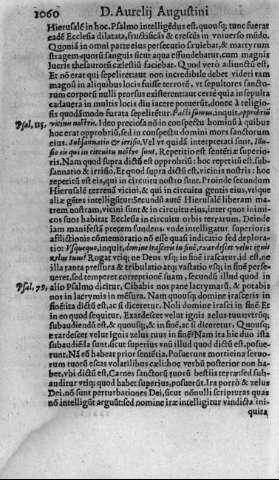 1060 D. Aurelij Augustini
Hierusalē in hoc Psalmo intelligēdus est, quousq; tunc fuerat
eadē Ecclesia dilatata, fructificās & crescēs in vniuerso mūdo.
Quoniā in omni parte eius persecutio sæuiebat, & martyrum
strages, quorū sanguis sicut aqua effundebatur, cum magnis
lucris thesaurorū cælestiū faciebat. Quod verò adiunctū est,
Et nō erat qui sepeliret: aut non incredibile debet videri tam
magnū in aliquibus locis fuisse terrorē, vt sepultores sanctorum
corporū nulli prorsus existerent: aut certè quia in sepulta
cadauera in multis locis diu iacere potuerūt, donec à religiosis
quodāmodo furata sepelirētur. Facti sumus, inquit, opprobriū
Psal. 115. vicinis nostris. Ideo preciosa nō in conspectu hominū à quibus
hoc erat opprobriū, sed in conspectu domini mors sanctorum
eius. Subsannatio & irrisio, Vel vt quidā interpretati sunt, illusio
eis qui in circuitu nostro sunt. Repetitio est sententiæ superioris.
Nam quod supra dictū est opprobriū: hoc repetitū est, subsannatio
& irrisio. Et quod supra dictū est, vicinis nostris: hoc
repetitū est eis, qui in circuitu nostro sunt. Proinde secundum
Hierusalē terrenā vicini, & qui in circuitu gentis eius, vtique
aliæ gētes intelligūtur: Secundū autē Hierusalē liberam matrem
nostram, vicini sunt & in circuitu eius, inter quos inimicos
suos habitat Ecclesia in circuitu orbis terrarum. Deinde
iam manifestā precem fundens, vnde intelligitur superioris
afflictionis cōmemoratio nō esse quasi indicatio sed deploratio:
Vsquequo, inquit, domine irasceris in finē, exardescet velut ignis
zelus tuus? Rogat vtiq; ne Deus vsq; in finē irascatur, id est, ne
illa tanta pressura & tribulatio atq; vastatio vsq; in finē perseueret,
sed temperet correptionē suam, secundū illud quod in
Psal. 79. alio Psalmo dicitur, Cibabis nos pane lacrymarū, & potabis
nos in lacrymis in mēsura. Nam quousq; domine irasceris in
finē: ita dictū est, ac si diceretur, Noli domine irasci in finē. Et
in eo quod sequitur, Exardescet velut ignis zelus tuus: vtrūq;
subaudiendū est, & quousq;, & in finē, ac si diceretur, Quousq;
exardescet velut ignis zelus tuus in finē? Nam hæc duo ista
subaudiēda sunt, sicut superius vnū illud quod dictū est, posuerunt.
Nā eū habeat prior sentētia, Posuerunt morticina seruorum
tuorū escas volatilibus cæli: hoc verbū posterior non habet,
vbi dictū est, Carnes sanctorū tuorū bestiis terræ: sed subauditur
vtiq; quod habet superius, posuerūt. Ira porrò & zelus
Dei, nō sunt perturbationes Dei, sicut nōnulli scripturas quas
nō intelligūt arguūt: sed nomine iræ intelligitur vindicta iniquita